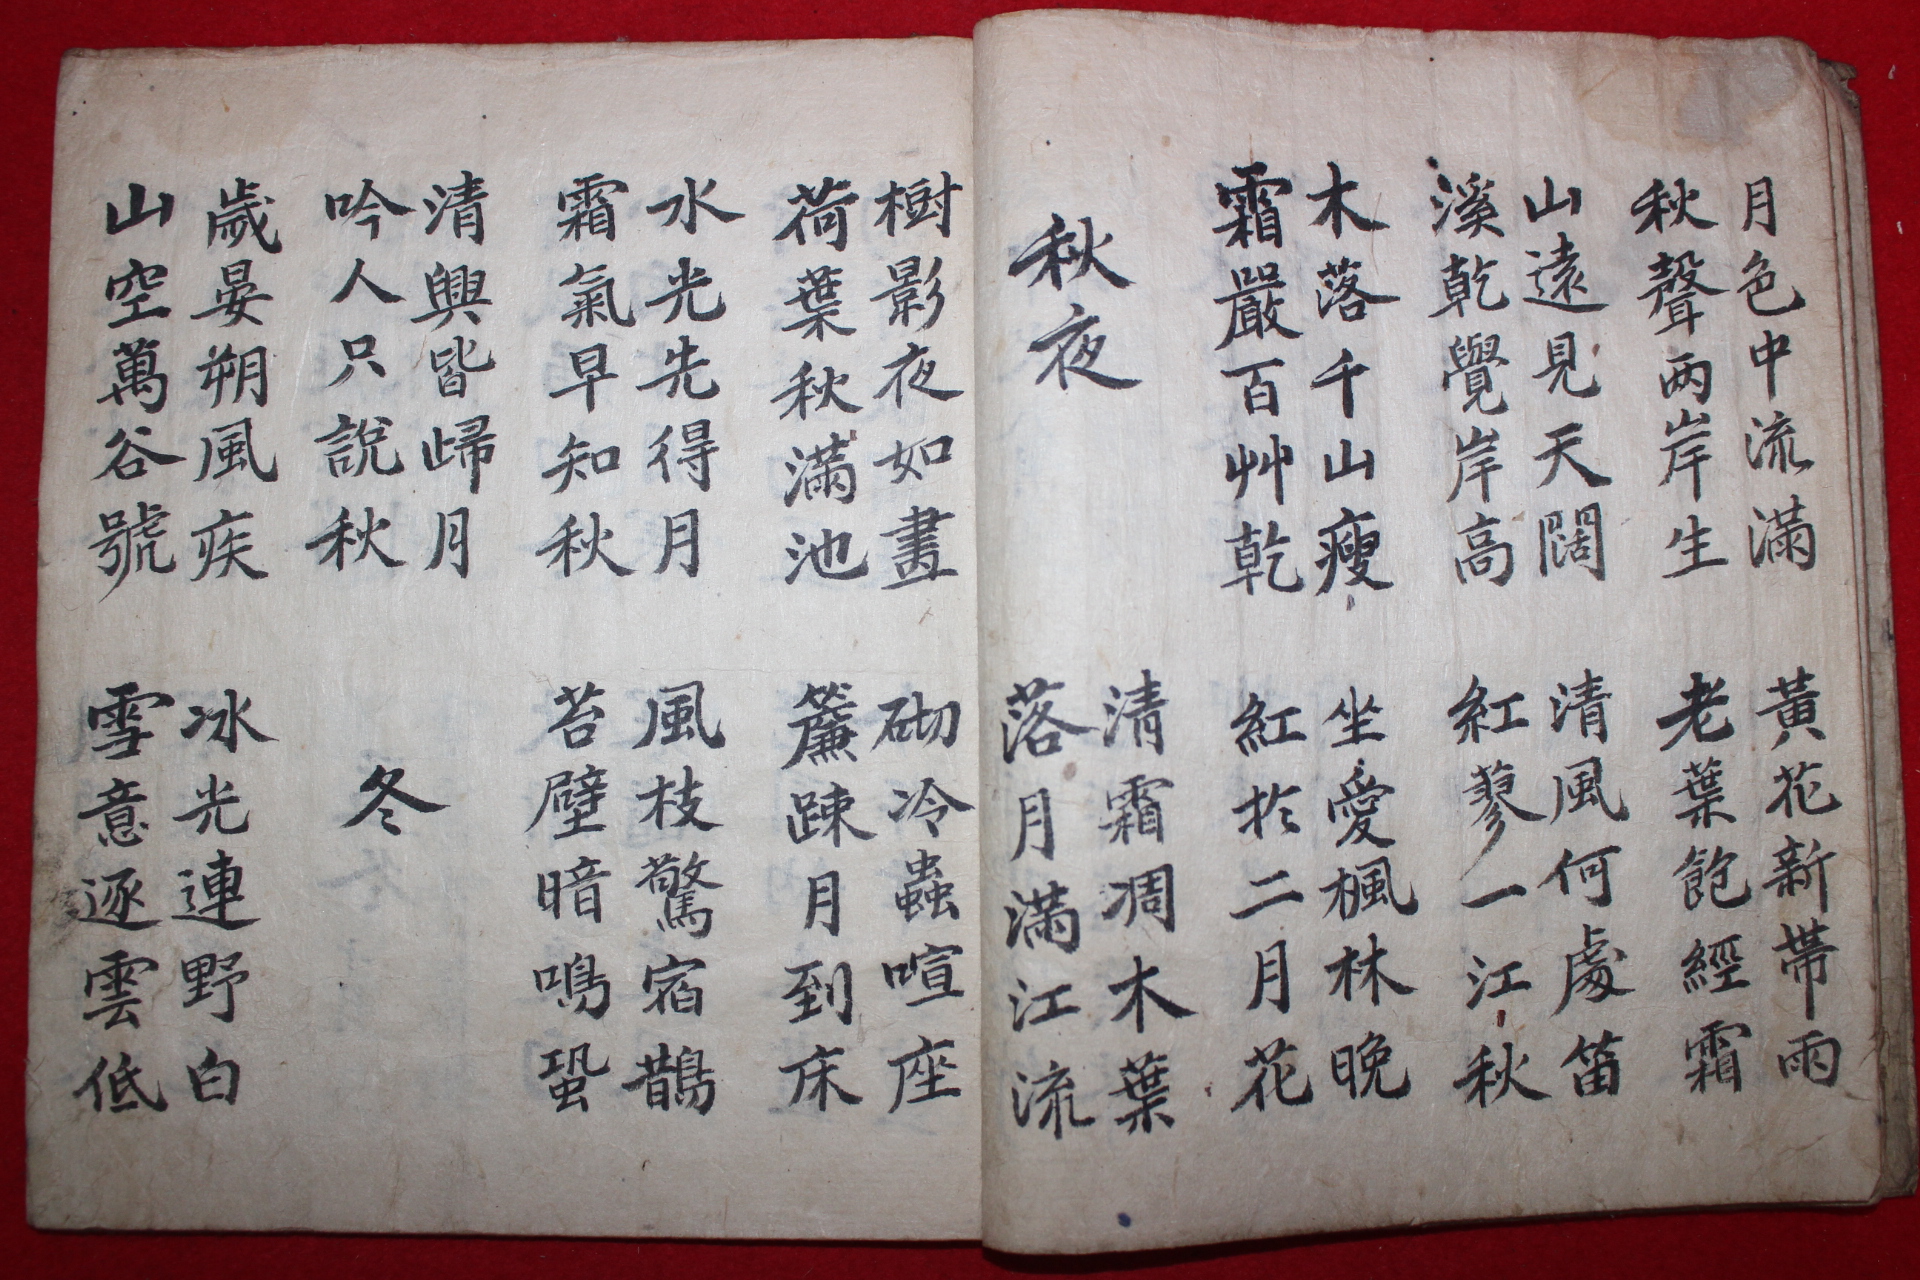 月色中流滿
秋聲两岸生
黃花新帶雨
老葉飽經霜
山遠見天闊
溪乾覺岸高
清風何處笛
紅蓼一江秋
木落千山瘦
霜嚴百艸乾
坐愛楓林晚
紅於二月花
秋夜
清霜凋木葉
落月滿江流
樹影夜如晝
荷葉秋滿池
砌冷蟲喧座
簾踈月到床
水光先得月
霜氣早知秋
風枝驚宿鵲
苔壁暗鳴蛩
清興皆歸月
吟人只說秋
冬
歲晏朔風疾
山空萬谷號
冰光連野白
雪意逐雲低